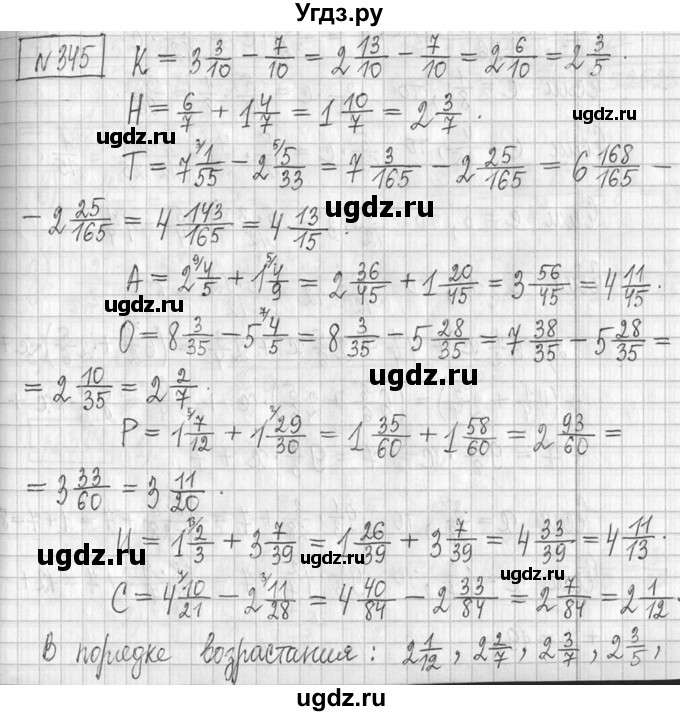 Угдз.ру
№345 К = 3 3/10 − 7/10 = 2 13/10 − 7/10 = 2 6/10 = 2 3/5.
Н = 6/7 + 1 4/7 = 1 10/7 = 2 3/7.
ugdz.ru ugdz.ru
Т = 7 3/ 1/55 − 2 5/ 5/33 = 7 3/165 − 2 25/165 = 6 168/165 −
− 2 25/165 = 4 143/165 = 4 13/15.
ugdz.ru
А = 2 9/ 4/5 + 1 5/ 4/9 = 2 36/45 + 1 20/45 = 3 56/45 = 4 11/45.
ugdz.ru ugdz.ru
О = 8 3/35 − 5 7/ 4/5 = 8 3/35 − 5 28/35 = 7 38/35 − 5 28/35 =
= 2 10/35 = 2 2/7.
ugdz.ru
Р = 1 5/ 7/12 + 1 2/ 29/30 = 1 35/60 + 1 58/60 = 2 93/60 =
ugdz.ru
= 3 33/60 = 3 11/20.
И = 1 13/ 2/3 + 3 7/39 = 1 26/39 + 3 7/39 = 4 33/39 = 4 11/13.
ugdz.ru ugdz.ru ugdz.ru
С = 4 4/ 10/21 − 2 3/ 11/28 = 4 40/84 − 2 33/84 = 2 7/84 = 2 1/12.
В порядке возрастания: 2 1/12, 2 2/7, 2 3/7, 2 3/5,
ugdz.ru ugdz.ru